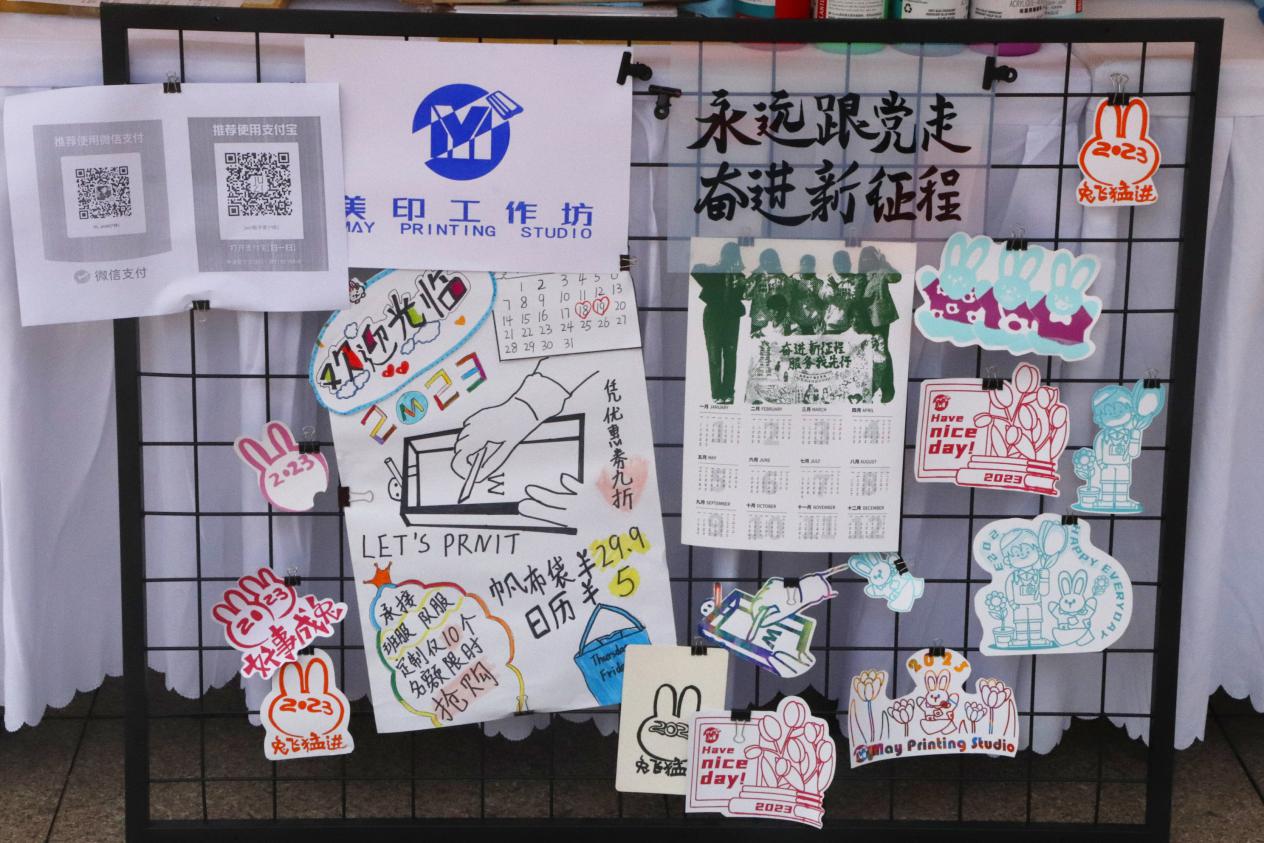 推荐使用微信支付
微信支付
推荐使用支付宝
打开支付宝[扫一扫]
美印工作坊
MAY PRINTING STUDIO
永远跟党走
奋进新征程
2023
兔飞猛进
欢迎光临
2023
1 2 3 4 5 6
7 8 9 10 11 12 13
14 15 16 17 18 19 20
21 22 23 24 25 26 27
28 29 30 31
凭优惠券九折
LET'S PRNIT
帆布袋 羊29.9
日历 羊5
承接
班服 队服
定制仅10个
名额限时
抢购
Thursday
Friday
奋进新征程
服务我先行
一月 JANUARY
二月 FEBRUARY
三月 MARCH
四月 APRIL
1 2 3 4
五月 MAY
六月 JUNE
七月 JULY
八月 AUGUST
5 6 7 8
九月 SEPTEMBER
十月 OCTOBER
十一月 NOVEMBER
十二月 DECEMBER
9 10 11 12
Have
nice
day!
2023
2023
2023
好事成兔
2023
兔飞猛进
HAPPY EVERYDAY
2023
兔飞猛
Have
nice
day!
2023
2023
May Printing Studio